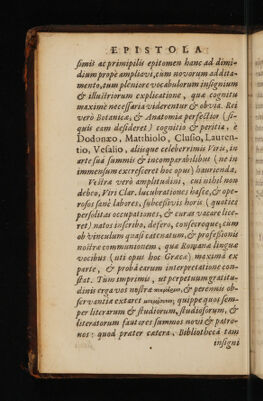 EPISTOLA
simis ac primipilis epitomen hanc ad dimi-
dium propè ampliavi, cum novorum additamento,
tum pleniore vocabulorum insignium
& illustriorum explicatione, quæ cognitu
maximè necessaria viderentur & obvia. Rei
verò Botanicæ, & Anatomiæ perfectior (si-
quis eam desideret) cognitio & peritia, è
Dodonæo, Matthiolo, Clusio, Lauren-
tio, Vesalio, aliisque celeberrimis Viris, in
arte suâ summis & incomparabilibus (ne in
immensum excresceret hoc opus) haurienda.
Vestra verò amplitudini, cui nihil non
debeo, Viri Clar. lucubrationes hasce, & ope-
rosos sanè labores, subcesivis horis (quoties
persolitas occupationes, & curas vacare lice-
ret) natos inscribo, defero, consecroque, cùm
ob vinculum quasi catenatum, & professionis
nostræ communionem, quæ Romana lingua
vocibus (uti opus hoc Græca) maximâ ex
parte, & probâ earum interpretatione con-
stat. Tum imprimis, ut perpetuum gratitu-
dinis erga vos nostræ & perennis ob-
servantiæ extaret quippe quos sem-
per literarum & studiorum, studiosorum, &
literatorum fautores summos novi & patro-
nos: quod præter cætera, Bibliothecâ tam
insigni